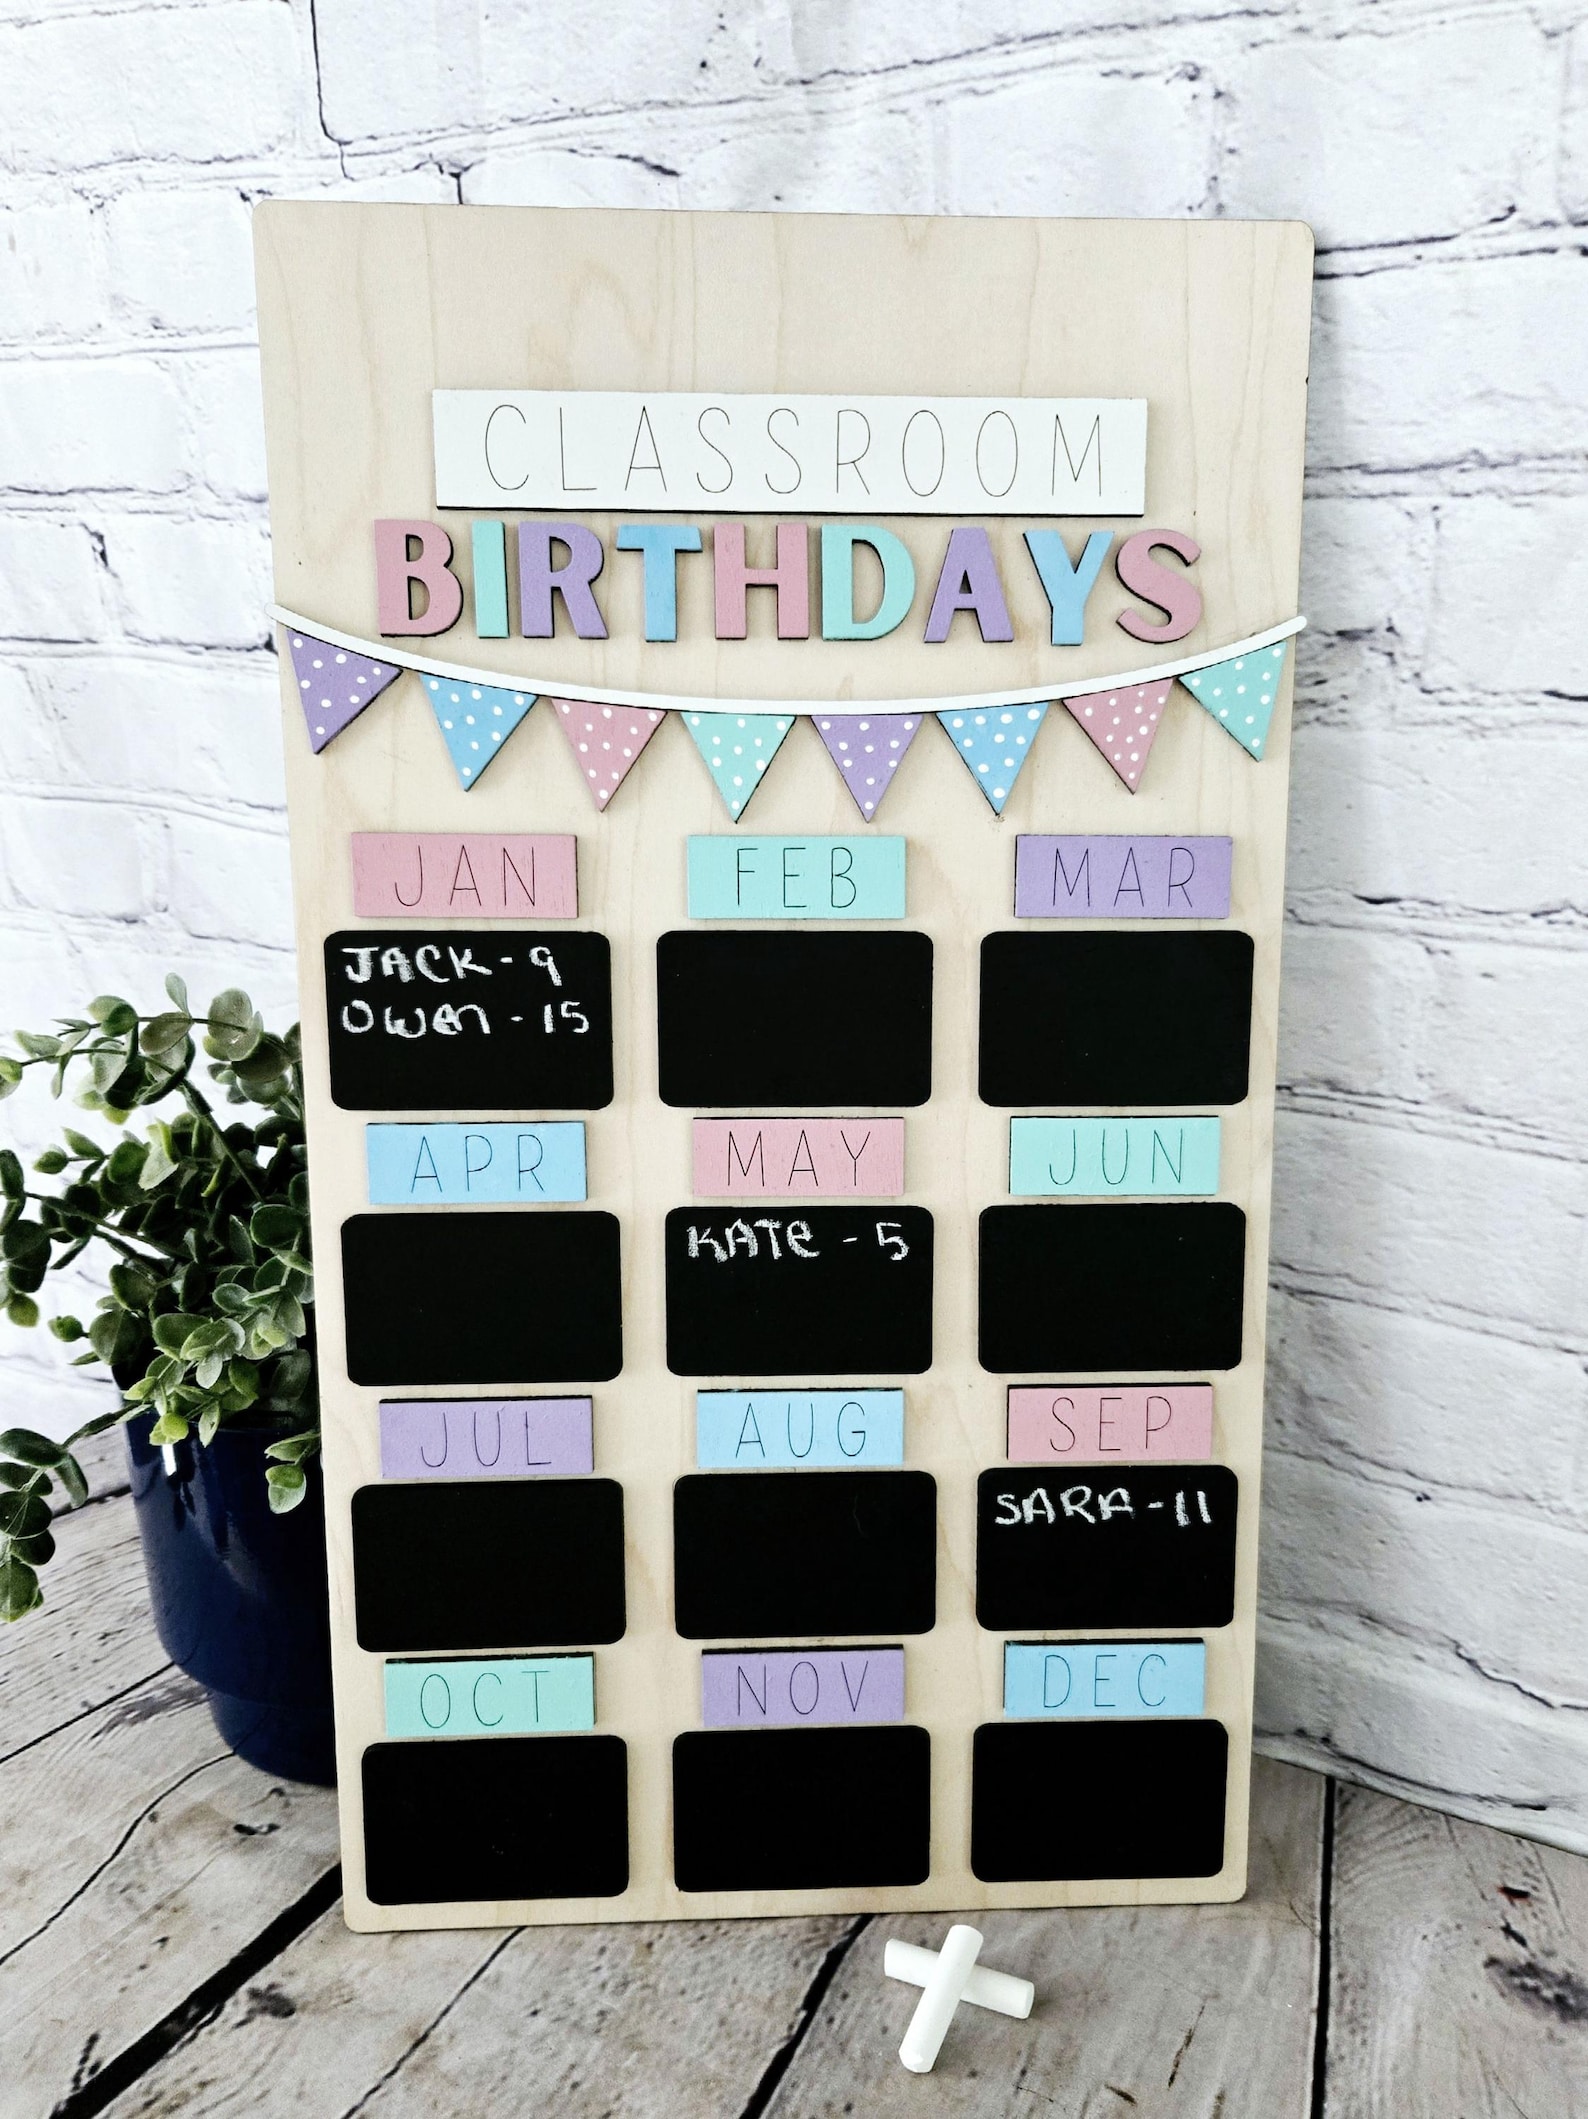 CLASSROOM
BIRTHDAYS
JAN FEB MAR
JACK - 9
OWEN - 15
APR MAY JUN
KATE - 5
JUL AUG SEP
SARA - 11
OCT NOV DEC